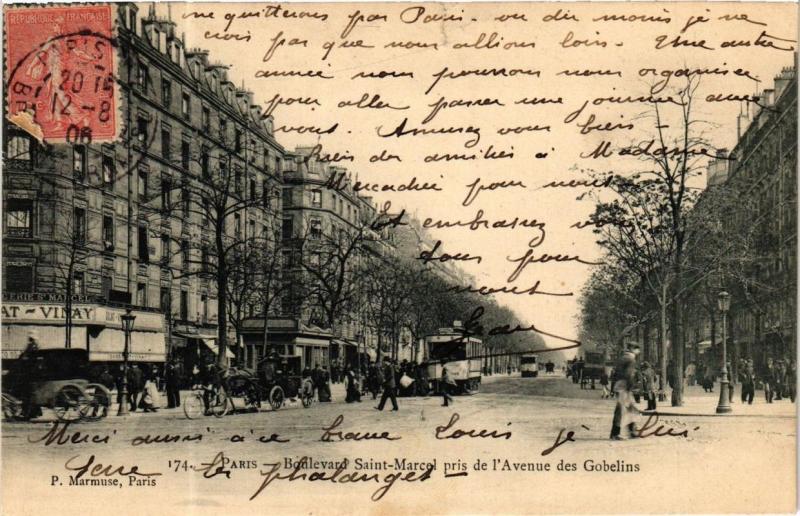 RÉPUBLIQUE FRANÇAISE
PARIS
20
12-8
06
ne quitterons par Paris - ou du moins je ne
crois par que nous allions loin. Une autre
année nous pourrons nous organiser
pour aller passer une journée avec
vous. Amusez vous bien -
Bien des amitiés à Madame
Mercadié pour nous
Et embrassez vous
tous pour
nous
Merci aussi à ce brave Louis je lui
Serre les phalanges -
SERIE ST MARCEL
AT-VINAY
174. - PARIS - Boulevard Saint-Marcel pris de l'Avenue des Gobelins
P. Marmuse, Paris